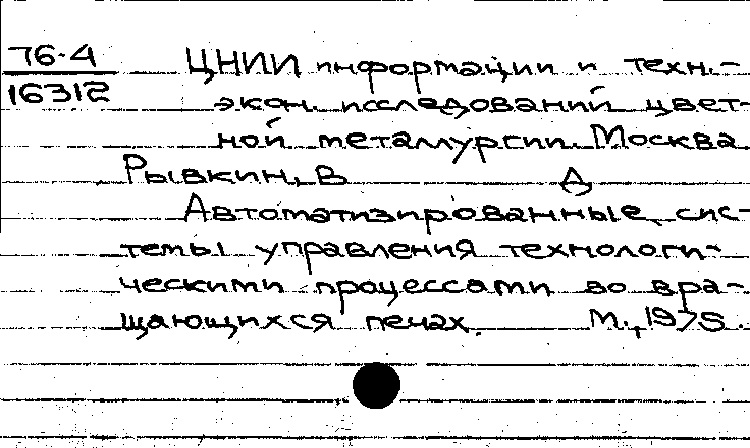 76-4
16312
ЦНИИ информации и техн.-
экон. исследований цвет-
ной металлургии. Москва
Рывкин, В
Д
Автоматизированные сис-
темы управления технологи-
ческими процессами во вра-
щающихся печах. М., 1975.